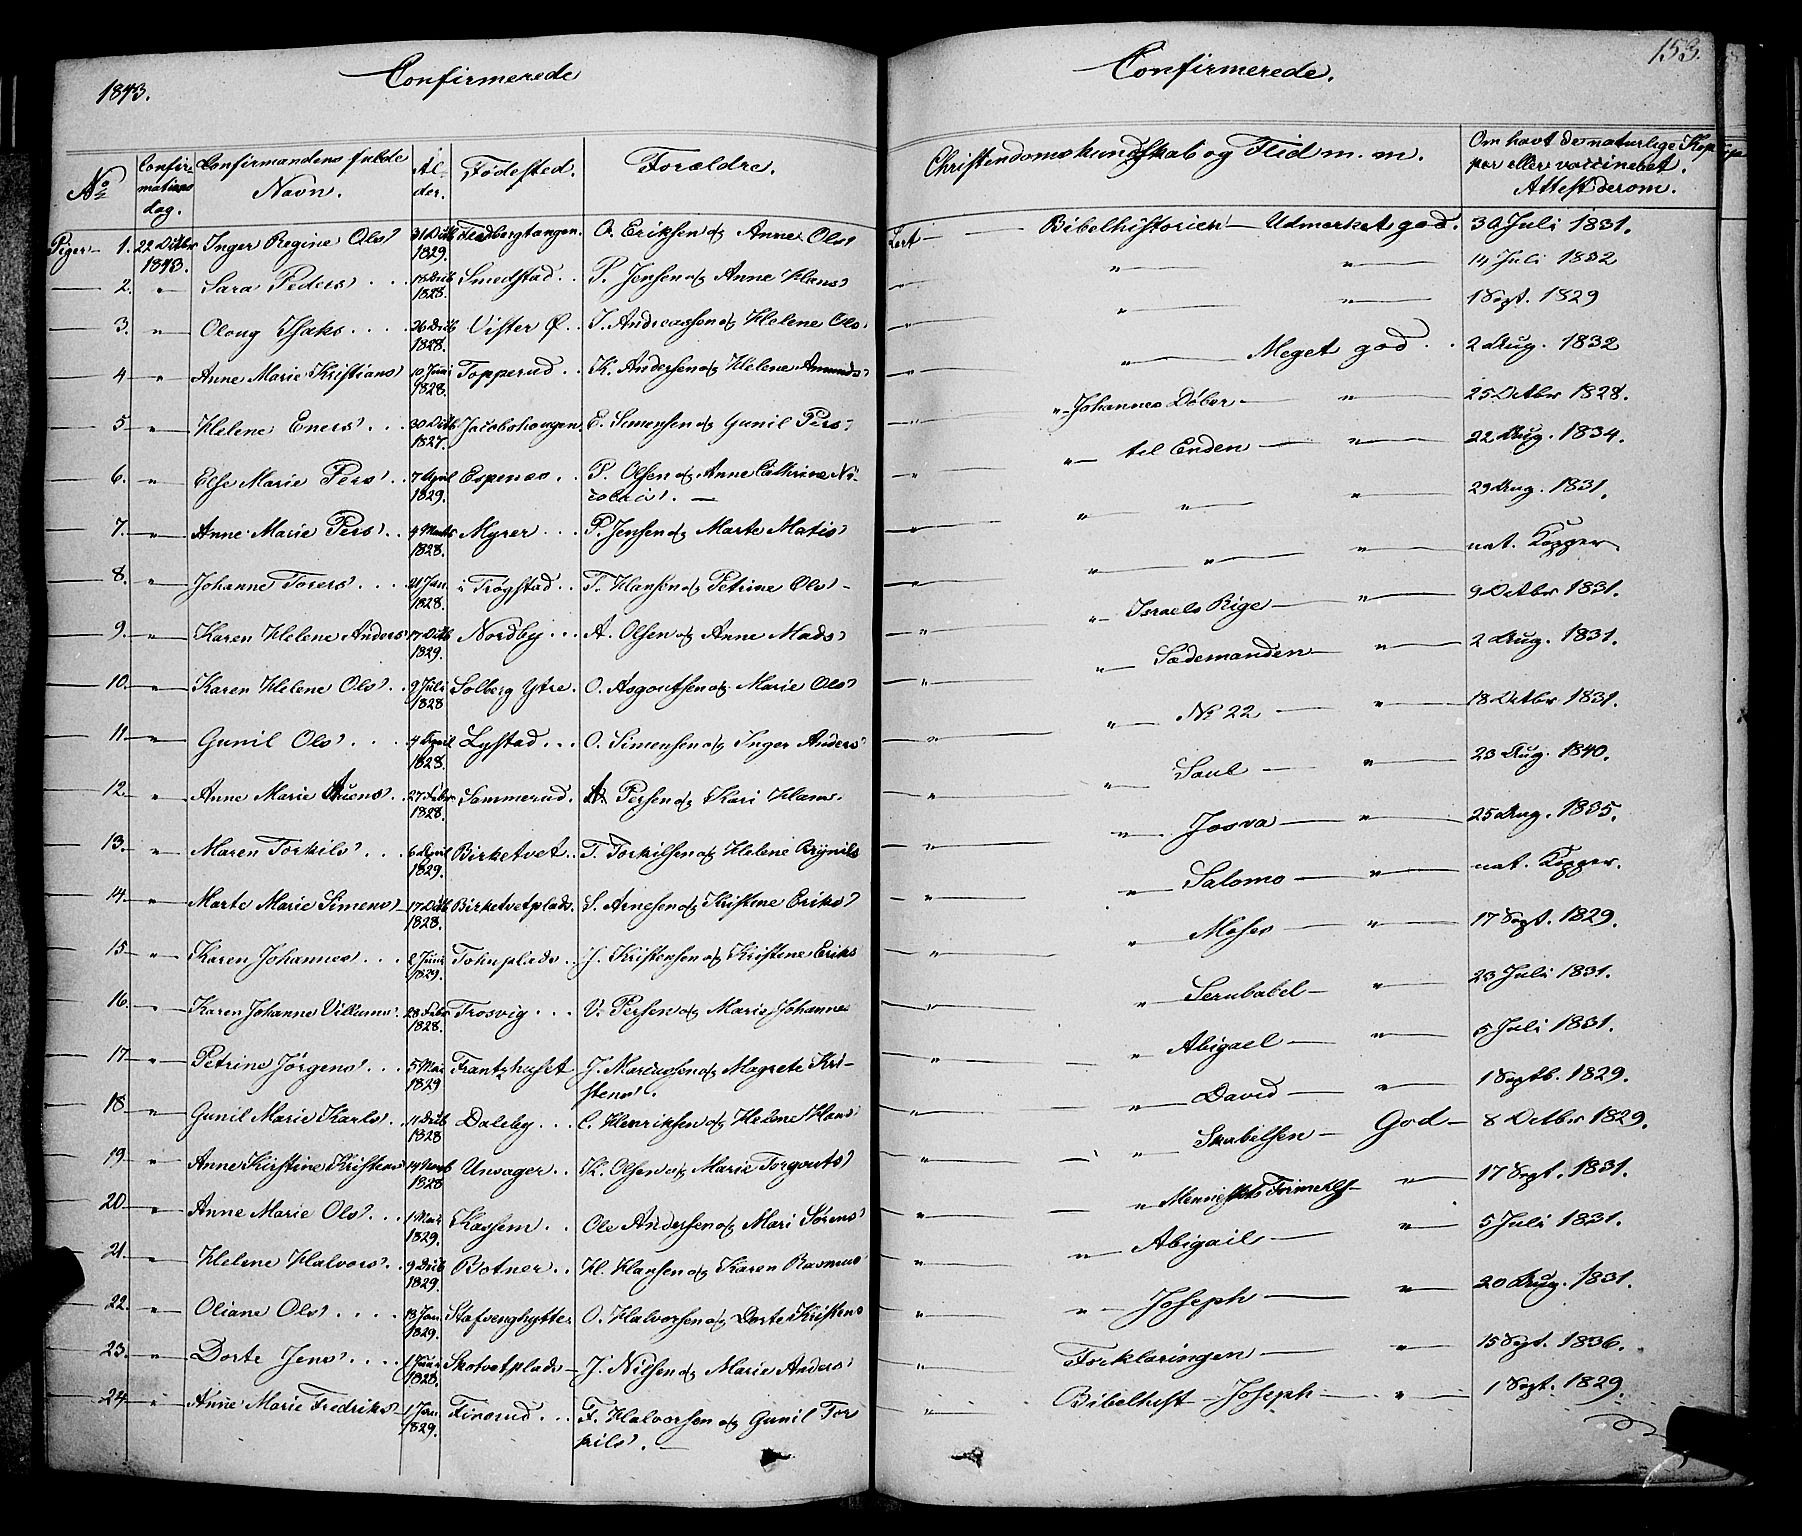 1843.
Confirmerede
Confirmerede.
153.
No
Confir-
mations
dag.
Confirmandens fulde
Navn.
Al-
der.
Fødested.
Forældre.
Christendomskundskab og Flid m. m.
Om havt de naturlige Kop-
per eller vaccineret.
Attest derom.
Piger — 1. 22 Octbr 1843. Inger Regine Ols' 31 Octb 1829. Fladbergtangen. O. Eriksen og Anne Ols' Lært — Bibelhistorien — Udmærket god. 30 Juli 1831.
2. " Sara Peders' 1828. Smedstad P. Jensen og Anne Hans' " " " 14 Juli 1832
3. " Oloug Isaks 26 1828. Vister Ø. I. Andreassen og Helene Ols' " " " 1 Sept. 1829
4 " Anne Marie Kristians' 10 Juni 1828. Topperud K. Andersen og Helene Amunds' " " Meget god 2 Aug. 1832
5 " Helene Eners' 30 Octb 1827. Jacobshougen. E. Simensen og Gunil Pers' " " Johannes Døber " 25 Octbr 1828.
6. " Else Marie Pers' 7 April 1829. Espenes P. Olsen og Anne Cathrine Ni-
colai'. " " til Enden " 22 Aug. 1834.
7. " Anne Marie Pers' 4 Marts 1828. Myrer P. Jensen og Marte Matis' " " " " 29 Aug. 1831.
8. " Johanne Torers' 21 Jan 1828. i Trøgstad T. Hansen og Petrine Ols' " " " " nat. Kopper.
9. " Karen Helene Anders 17 Octb 1829. Nordby A. Olsen og Anne Mads' " " Israels Rige " 9 Octbr 1831.
10. " Karen Helene Ols' 9 Juli 1828 Solberg Ytre. O. Asgoutsen og Marie Ols' " " Sædemanden " 2 Aug. 1831.
11. " Gunil Ols' 4 April 1828. Lystad O. Simensen og Inger Anders' " " No 22 " 18 Octbr 1831.
12. " Anne Marie 27 Febr 1828. Sommerud. Persen og Kari Hans' " " Saul " 23 Aug. 1840.
13. " Maren Torkils' 6 April 1829. Birketvet T. Torkilsen og Helene Brynils " " Josva " 25 Aug. 1835.
14. " Marte Marie Simens' 17 Octb 1828. Birketvetplads. S. Arnesen og Kristine Eriks' " " Salomo " nat. Kopper.
15 " Karen Johannes 2 Juni 1829. Tofnplads J. Kristensen og Kristine Eriks " " Moses " 17 Sept. 1829.
16. " Karen Johanne Villums' 28 Febr 1828. Trosvig V. Persen og Marie Johannes " " Serubabel " 23 Juli 1831.
17 " Petrine Jørgens' 5 Mai 1829 Frantzhuset J. Marcussen og Magrete Kri-
stens'. " " Abigael " 5 Juli 1831.
18 " Gunil Marie Karls' 11 1828 Daleby C. Henriksen og Helene Hans' " " David " 1 Septb. 1829.
19 " Anne Kirstine Kristens' 14 1828 Unsager K. Olsen og Marie Torgouts' " " God 8 Octbr 1829.
20 " Anne Marie Ols' 1 Mai 1829. Kassem Ole Andersen og Mari Sørens' " " 17 Sept. 1831.
21 " Helene Halvors' 9 1829. Botner H. Hansen og Karen Rasmus' " " Abigail " 5 Juli 1831.
22. " Oliane Ols' 13 Jan 1829. Stafsenghytte O. Halvorsen og Dorte Kristens " " Joseph " 20 Aug. 1831.
23. " Dorte Jens' 1 Juni 1828. Skotvetplads J. Nilsen og Marie Anders' " Forklaringen " 15 Sept. 1836.
24 " Anne Marie Fredriks' 1 Jan 1829. Finsrud F. Halvorsen og Gunil Tor
kils'. " Bibelhist — Joseph " 1 Sept. 1829.